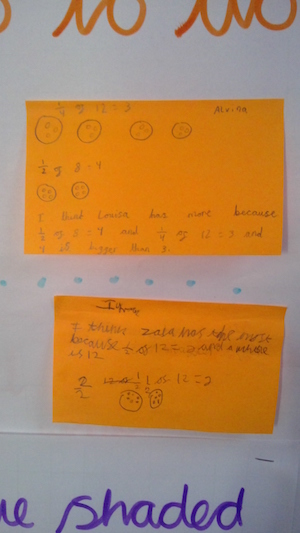 ¼ of 12 = 3
½ of 8 - 4
I think Louisa has more because
½ of 8 = 4 and ¼ of 12 = 3 and
4 is bigger than 3.
I think zara has the most
because ½ of 12 = and a whole
is 12
2/2 of 12 = 2
shaded